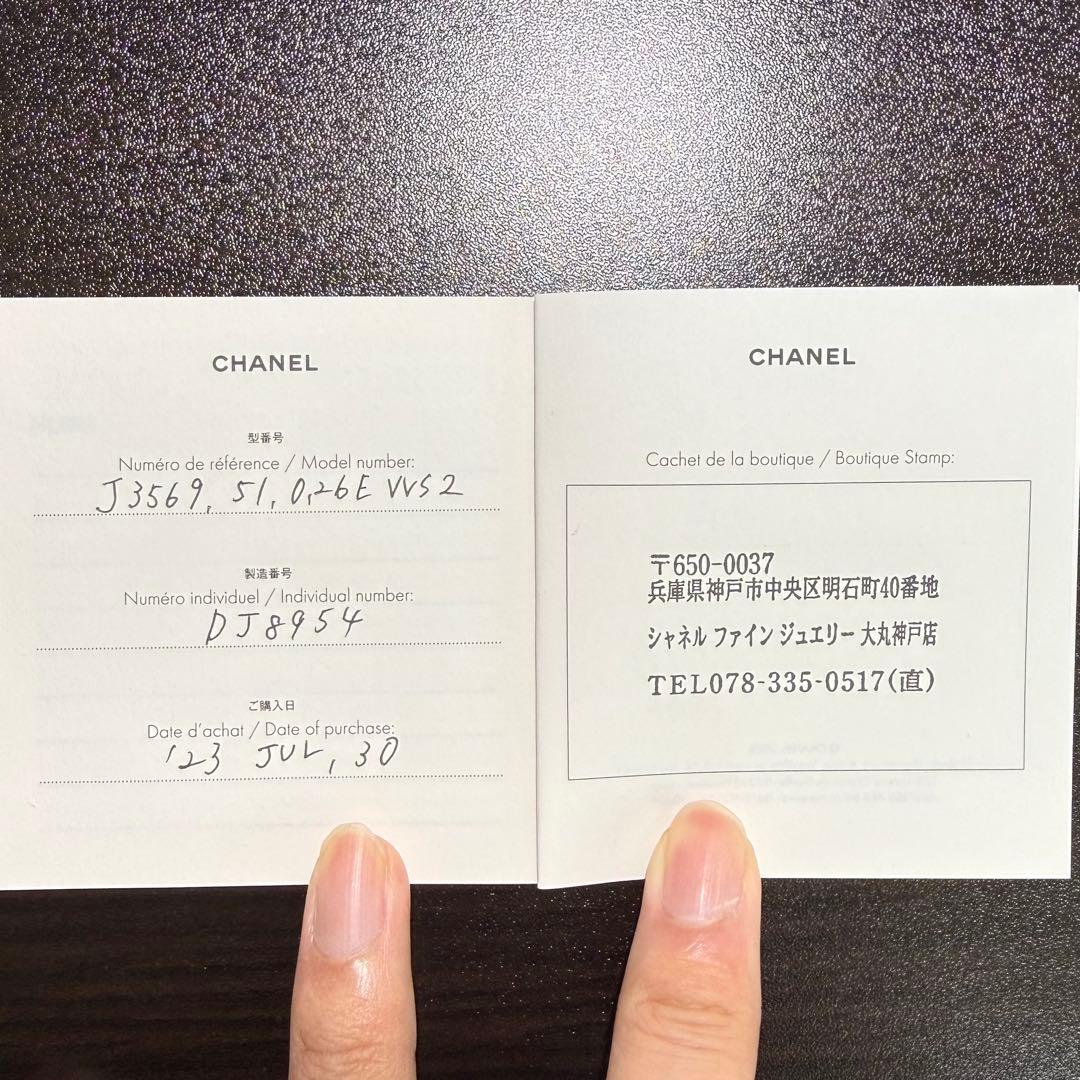 CHANEL
型番号
Numéro de référence / Model number:
J3569, 51, 0,26E VVS2
製造番号
Numéro individuel / Individual number:
DJ8954
ご購入日
Date d'achat / Date of purchase:
'23 JUL, 30
CHANEL
Cachet de la boutique / Boutique Stamp:
〒650-0037
兵庫県神戸市中央区明石町40番地
シャネル ファイン ジュエリー 大丸神戸店
TEL078-335-0517(直)